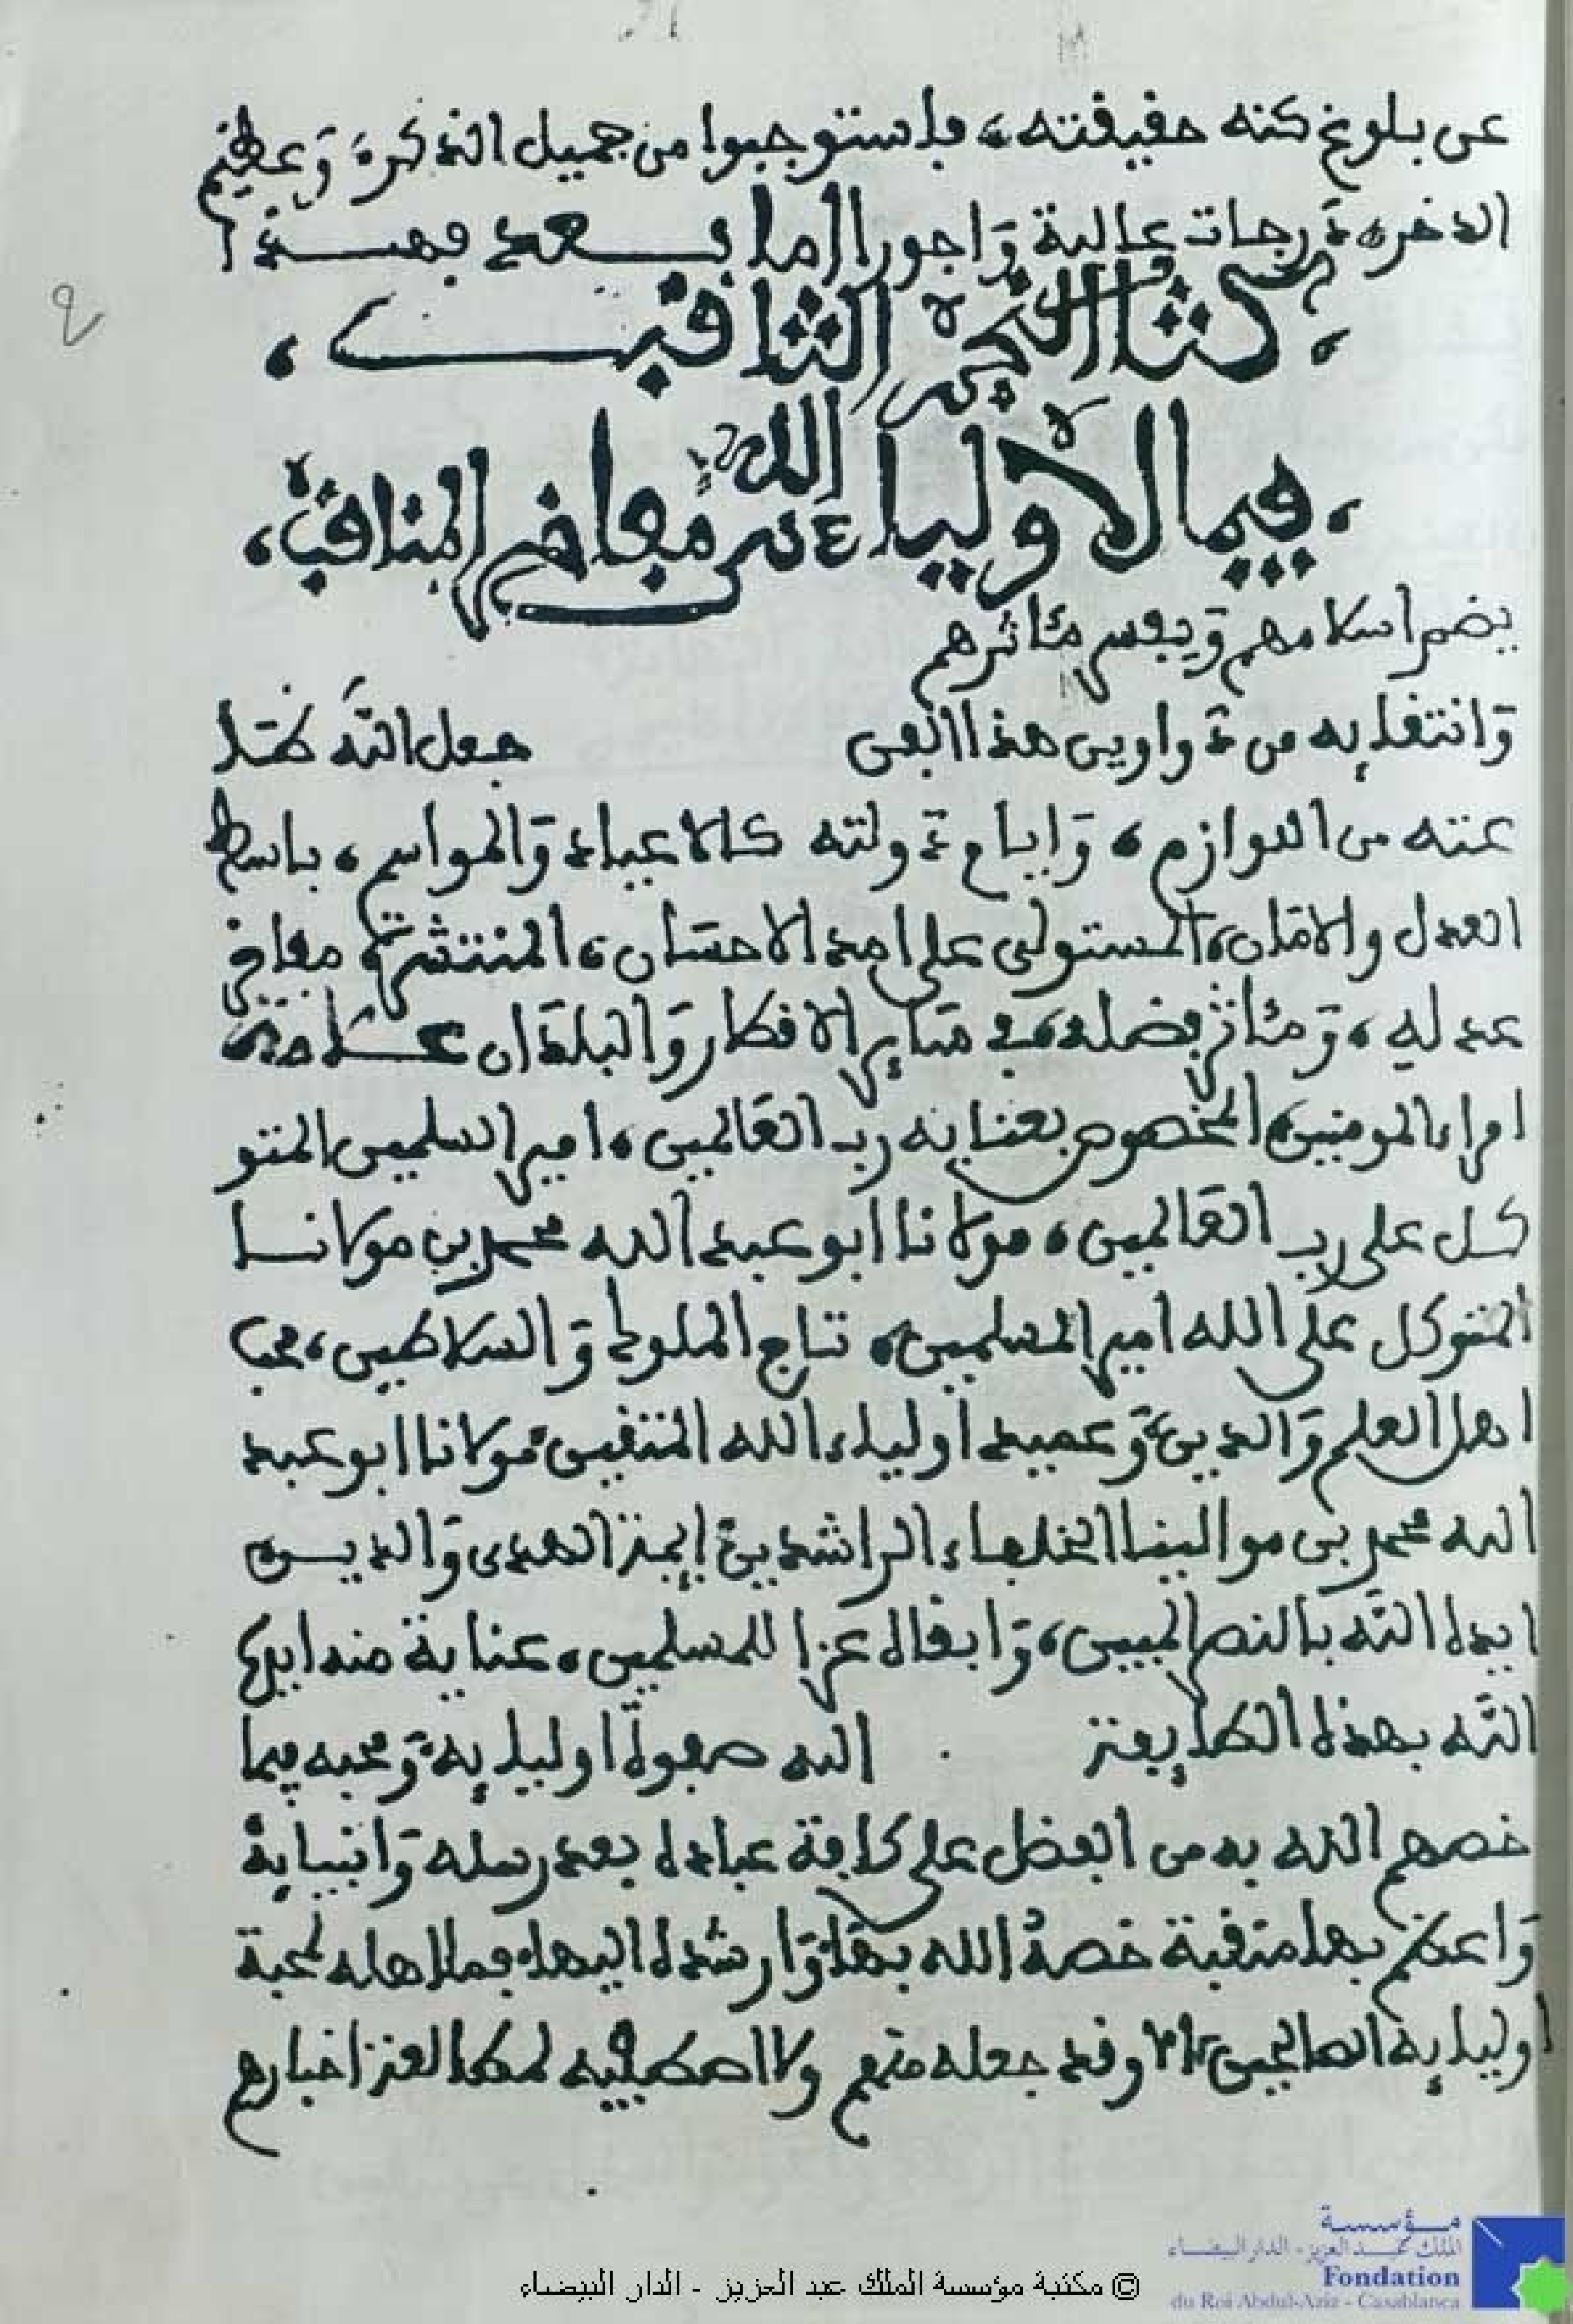 عن بلوغ كنه حقيقته، فاستوجبوا من جميل الذكر، وَعظيم
الذخر، دَرجات عالية وَاجورا اما بعد فهذا
كتاب النجم الثاقب،
فيما لاولياء الله من مفاخر المناقب،
يضم اسلامهم وَيفسر مئاثرهم
وَانتقايه من دَواوين هذا الفن جعل الله طَا
عته من اللوازم، وَايام دَولته كالاعياد وَالمواسم، باسط
العدل والامَان، المستولى على امد الاحسَان، المنتشرة مفاخر
عدله، وَمئاثر فضله، في سَاير الاقطار وَالبلدَان
امراء المومنين، المخصوص بعناية رب العَالمين، امير المسلمين المتو
كل على رب العَالمين، مولانا ابو عبد الله محمد بن مولانا
المتوكل على الله امير المسلمين، تاج الملوك وَالسلاطين، محب
اهل العلم وَالدين، وَعميد اولياء الله المتقين، مولانا ابو عبد
الله محمد بن موالينا الخلفاء الراشدين ايمة الهدى وَالدين
ايده الله بالنصر المبين، وَابقاه عزا للمسلمين، عناية منه ايده
الله بهذه الطايفة الله صفوة اوليايه، وَمحبه فيما
خصهم الله به من الفضل على كافة عباده بعد رسله وَانبيايه
وَاعظم بها منقبة خصهُ الله بهَا، وَارشده اليها، فما لاهله لمحبة
اوليايه الصالحين، الا وقد جعله منهم ولا اصطفيه لمطالعة اخبارهم
مؤسسة
الملك عبد العزيز - الدار البيضاء
Fondation
du Roi Abdul-Aziz - Casablanca
© مكتبة مؤسسة الملك عبد العزيز - الدار البيضاء